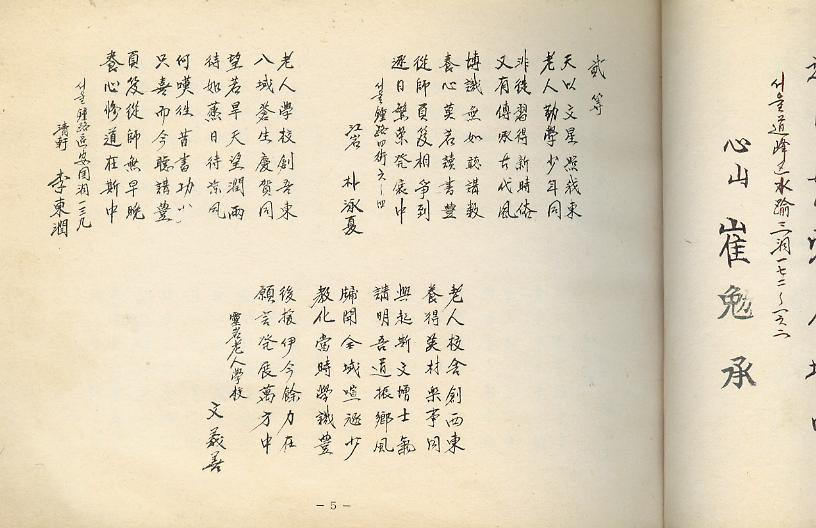 서울道峰区水踰三洞一七二~一六二
心山 崔勉承
貳等
天以文星照我東
老人勤學少年同
非徒習得新時俗
又有傳承古代風
博識無如聽講數
養心莫若讀書豊
從師負笈相爭到
逐日繁榮發展中
서울鍾路四街六~四
江岩 朴泳夏
老人學校創吾東
八域蒼生慶賀同
望若旱天望潤雨
待如蒸日待凉風
何嘆徃昔書功小
只喜而今聽講豊
負笈從師無早晩
養心修道在斯中
서울鍾路區安国洞一三九
清軒 李東潤
老人校舍創西東
養得英材樂事同
興起斯文博士氣
講明吾道振鄉風
全域喧
教化當時學識豊
後援伊今餘力在
願言發展萬方中
靈岩老人學校
文義善
- 5 -